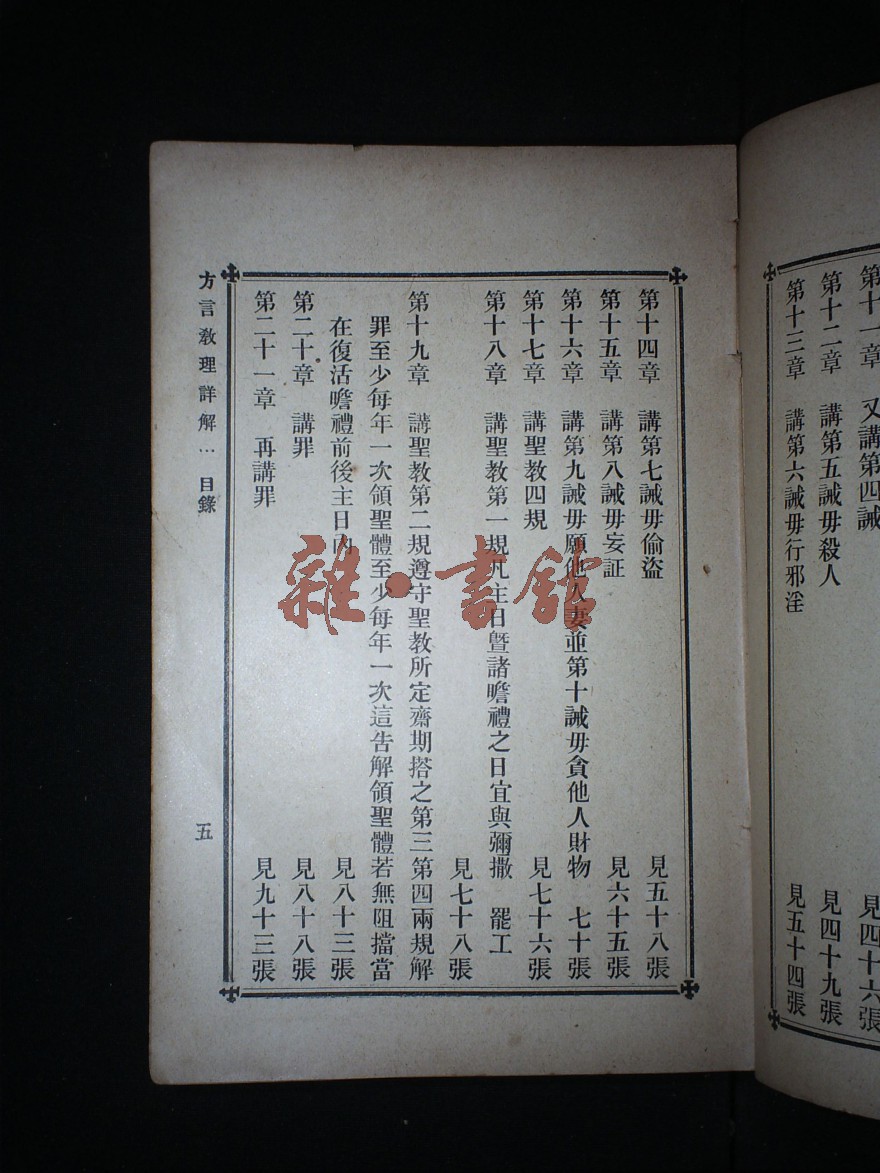 第十一章　又講第四誡　見四十六張
第十二章　講第五誡毋殺人　見四十九張
第十三章　講第六誡毋行邪淫　見五十四張
第十四章　講第七誡毋偷盜　見五十八張
第十五章　講第八誡毋妄証　見六十五張
第十六章　講第九誡毋願他人妻並第十誡毋貪他人財物　七十張
第十七章　講聖教四規　見七十六張
第十八章　講聖教第一規凡主日暨諸瞻禮之日宜與彌撒　罷工
見七十八張
第十九章　講聖教第二規遵守聖教所定齋期搭之第三第四兩規解
罪至少每年一次領聖體至少每年一次這告解領聖體若無阻擋當
在復活瞻禮前後主日內　見八十三張
第二十章　講罪　見八十八張
第二十一章　再講罪　見九十三張
方言教理詳解…　目錄　五
雜·書館